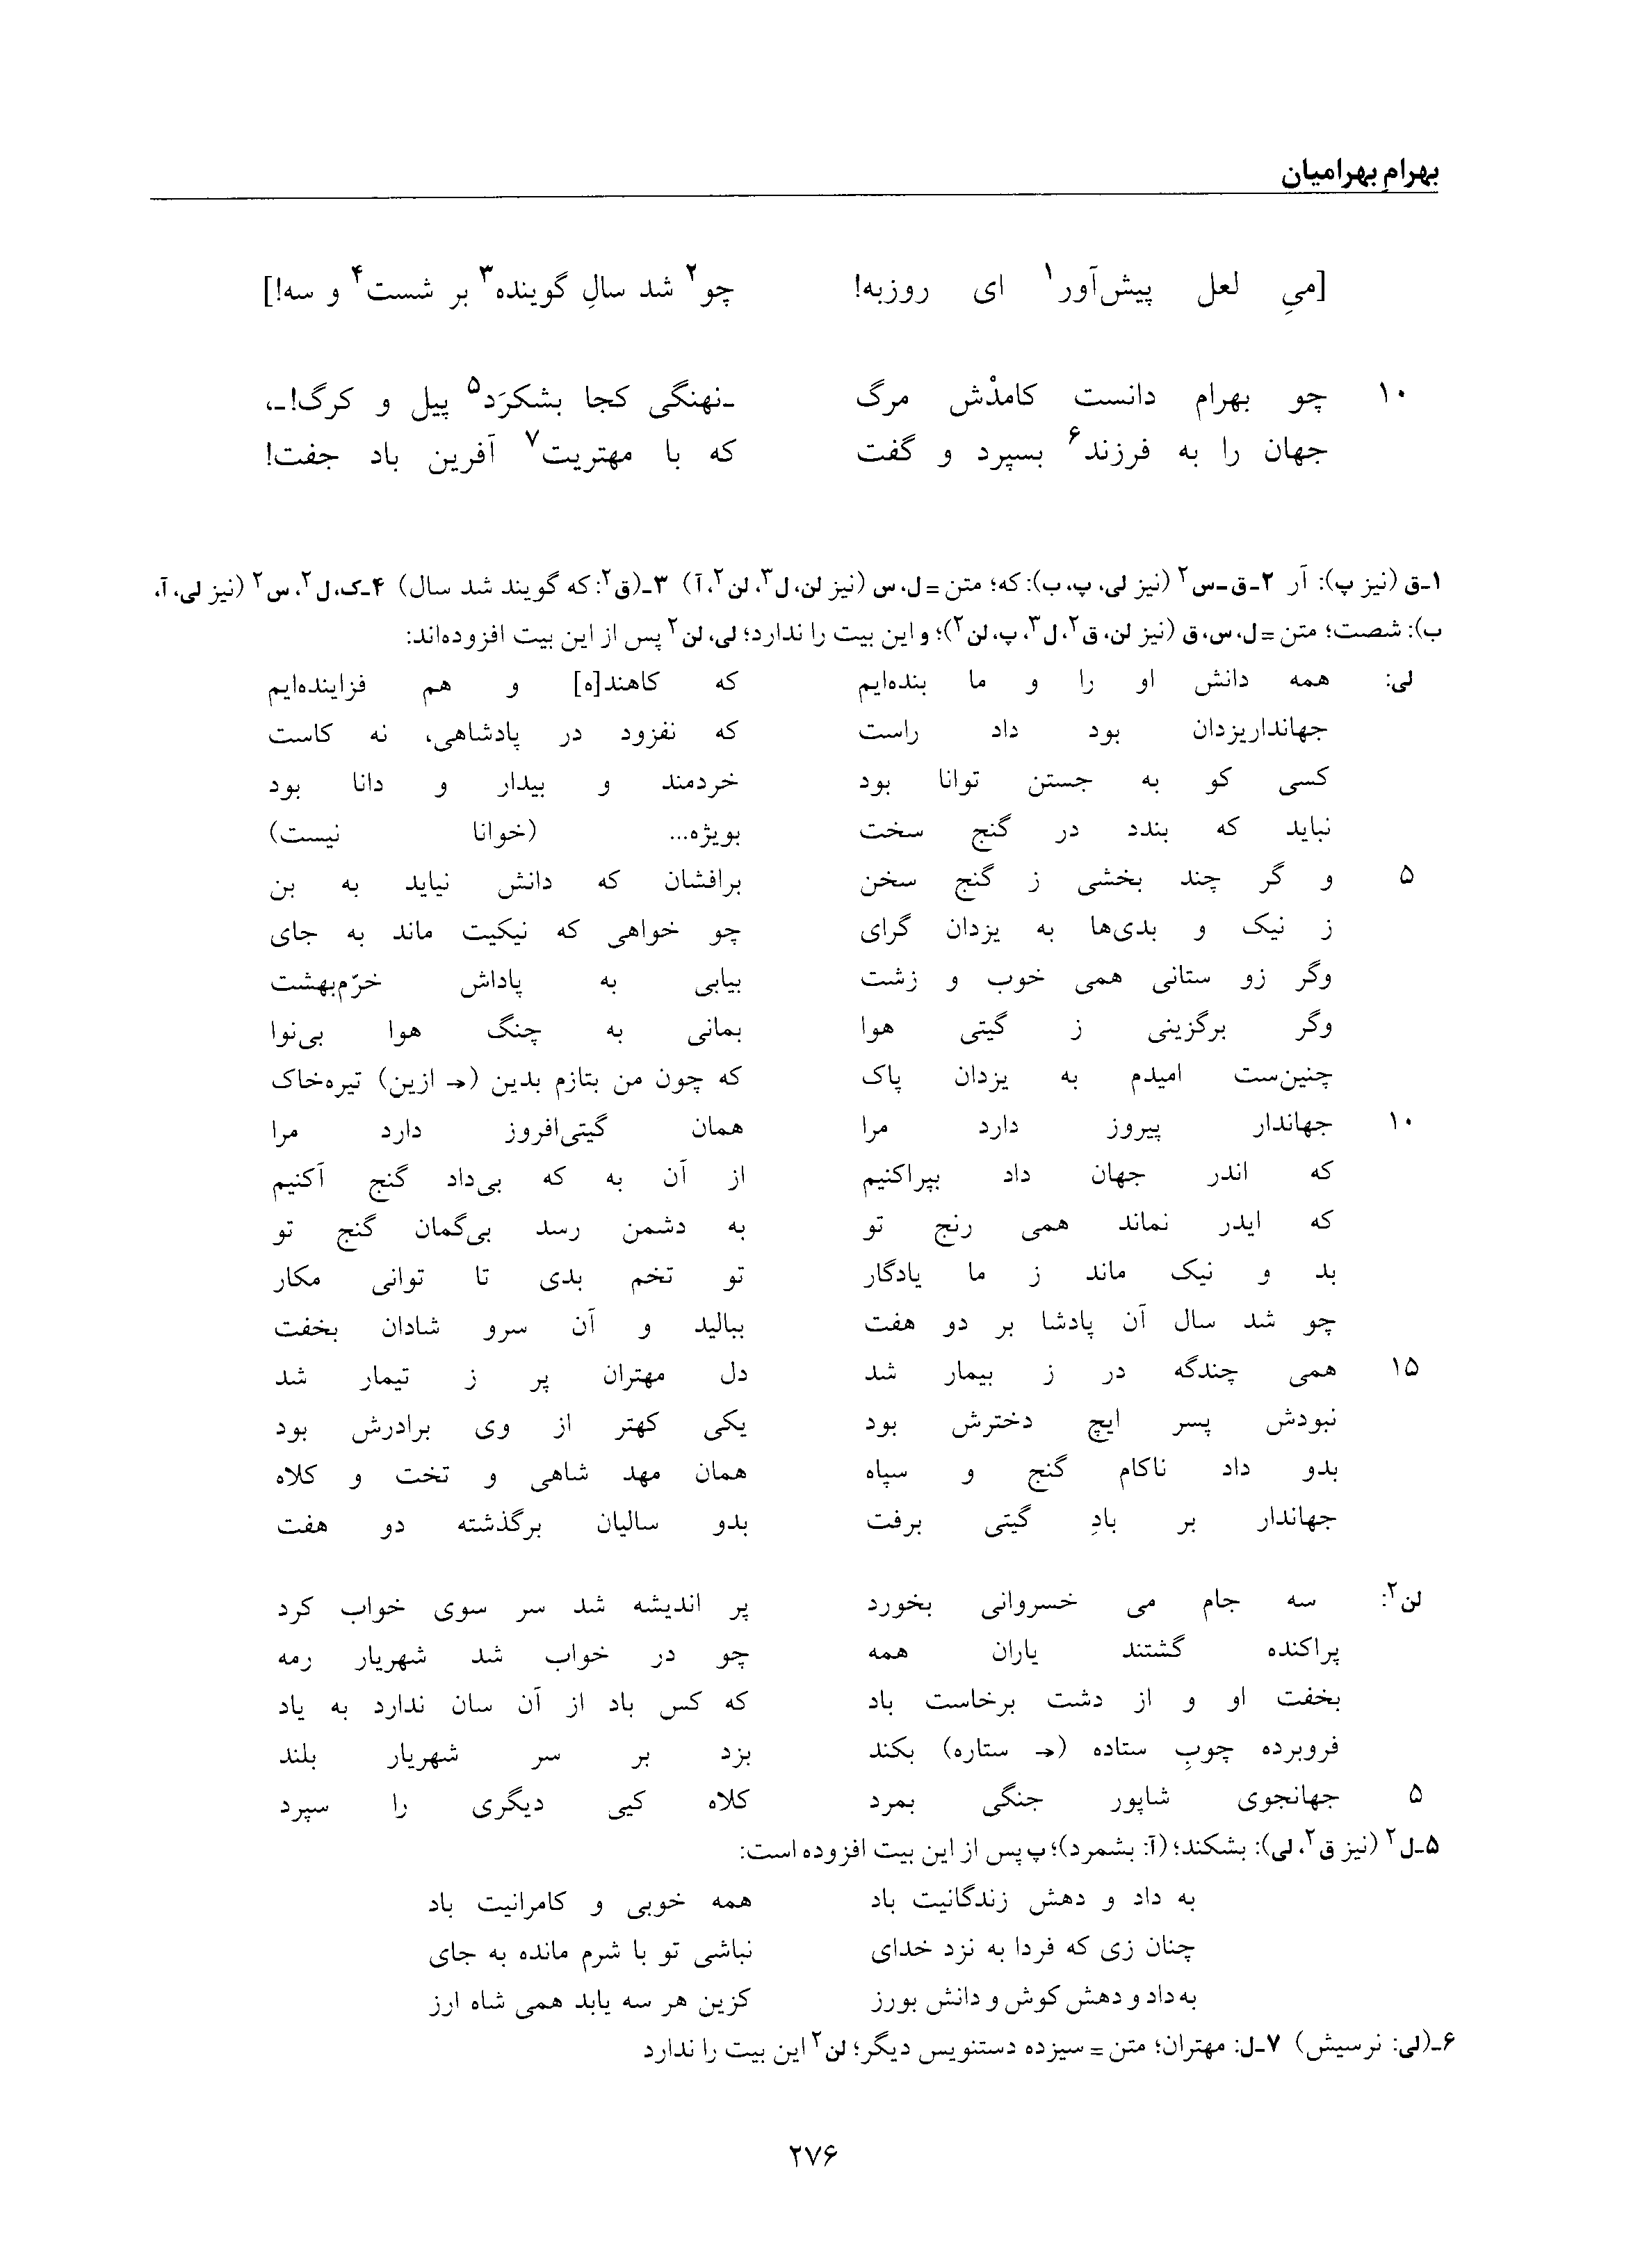 بهرامِ بهرامیان
[میِ لعل پیش‌آور۱ ای روزبه! چو۲ شد سالِ گوینده۳ بر شست۴ و سه!]
۱۰ چو بهرام دانست کامدْش مرگ ـ‌نهنگی کجا بشکرَد۵ پیل و کرگ!ـ،
جهان را به فرزند۶ بسپرد و گفت که با مهتریت۷ آفرین باد جفت!
۱ـ‌ق (نیز پ): آر ۲ـ‌ق‌ـ‌س۲ (نیز لی، پ، ب): که؛ متن = ل، س (نیز لن، ل۳، لن۲، آ) ۳ـ(ق۲: که گویند شد سال) ۴ـ‌ک، ل۲، س۲ (نیز لی، آ،
ب): شصت؛ متن = ل، س، ق (نیز لن، ق۲، ل۳، پ، لن۲)؛ و این بیت را ندارد؛ لی، لن۲ پس از این بیت افزوده‌اند:
لی: همه دانش او را و ما بنده‌ایم که کاهند[ه] و هم فزاینده‌ایم
جهانداریزدان بود داد راست که نفزود در پادشاهی، نه کاست
کسی کو به جستن توانا بود خردمند و بیدار و دانا بود
نباید که بندد در گنج سخت بویژه... (خوانا نیست)
۵ و گر چند بخشی ز گنج سخن برافشان که دانش نیاید به بن
ز نیک و بدی‌ها به یزدان گرای چو خواهی که نیکیت ماند به جای
وگر زو ستانی همی خوب و زشت بیابی به پاداش خرّم‌بهشت
وگر برگزینی ز گیتی هوا بمانی به چنگ هوا بی‌نوا
چنین‌ست امیدم به یزدان پاک که چون من بتازم بدین (← ازین) تیره‌خاک
۱۰ جهاندار پیروز دارد مرا همان گیتی‌افروز دارد مرا
که اندر جهان داد بپراکنیم از آن به که بی‌داد گنج آکنیم
که ایدر نماند همی رنج تو به دشمن رسد بی‌گمان گنج تو
بد و نیک ماند ز ما یادگار تو تخم بدی تا توانی مکار
چو شد سال آن پادشا بر دو هفت ببالید و آن سرو شادان بخفت
۱۵ همی چندگه در ز بیمار شد دل مهتران پر ز تیمار شد
نبودش پسر ایچ دخترش بود یکی کهتر از وی برادرش بود
بدو داد ناکام گنج و سپاه همان مهد شاهی و تخت و کلاه
جهاندار بر بادِ گیتی برفت بدو سالیان برگذشته دو هفت
لن۲: سه جام می خسروانی بخورد پر اندیشه شد سر سوی خواب کرد
پراکنده گشتند یاران همه چو در خواب شد شهریار رمه
بخفت او و از دشت برخاست باد که کس باد از آن سان ندارد به یاد
فروبرده چوبِ ستاده (← ستاره) بکند بزد بر سر شهریار بلند
۵ جهانجوی شاپور جنگی بمرد کلاه کیی دیگری را سپرد
۵ـ‌ل۲ (نیز ق۲، لی): بشکند؛ (آ: بشمرد)؛ پ پس از این بیت افزوده است:
به داد و دهش زندگانیت باد همه خوبی و کامرانیت باد
چنان زی که فردا به نزد خدای نباشی تو با شرم مانده به جای
به داد و دهش کوش و دانش بورز کزین هر سه یابد همی شاه ارز
۶ـ(لی: نرسیش) ۷ـ‌ل: مهتران؛ متن = سیزده دستنویس دیگر؛ لن۲ این بیت را ندارد
۲۷۶